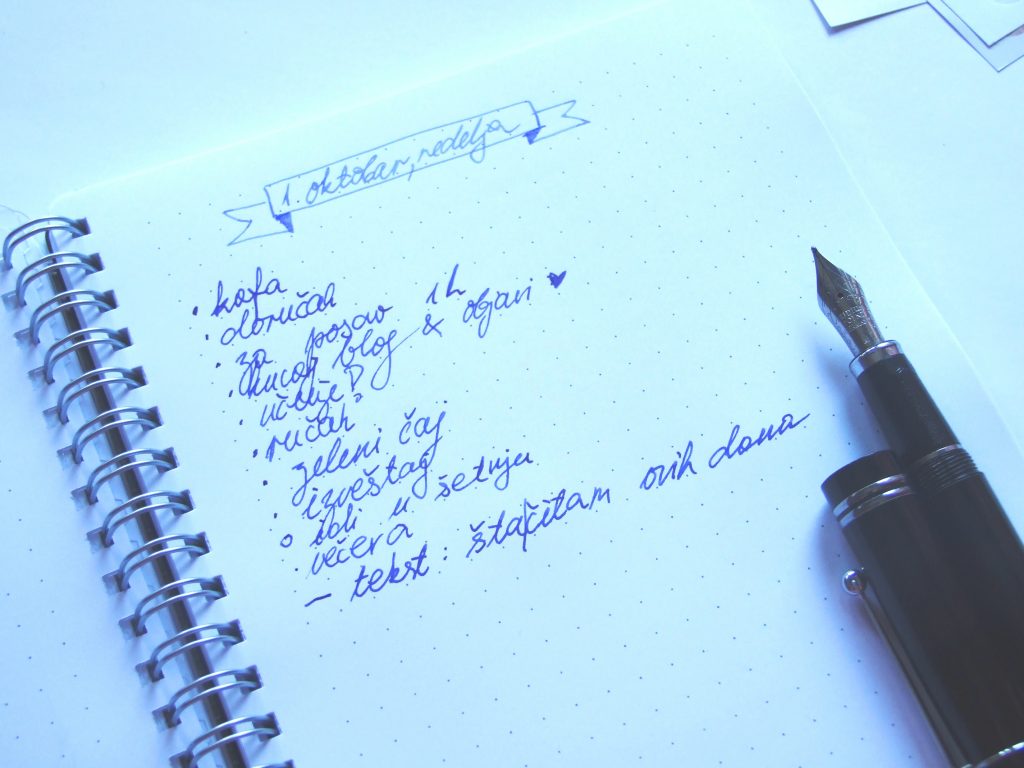 1. oktobar, nedelja
· kafa
· doručak
· za posao 1h
· kucaj blog & objavi ♥
· učenje?
· ručak
· zeleni čaj
· izveštaj
o idi u šetnju
· večera
– tekst: šta čitam ovih dana